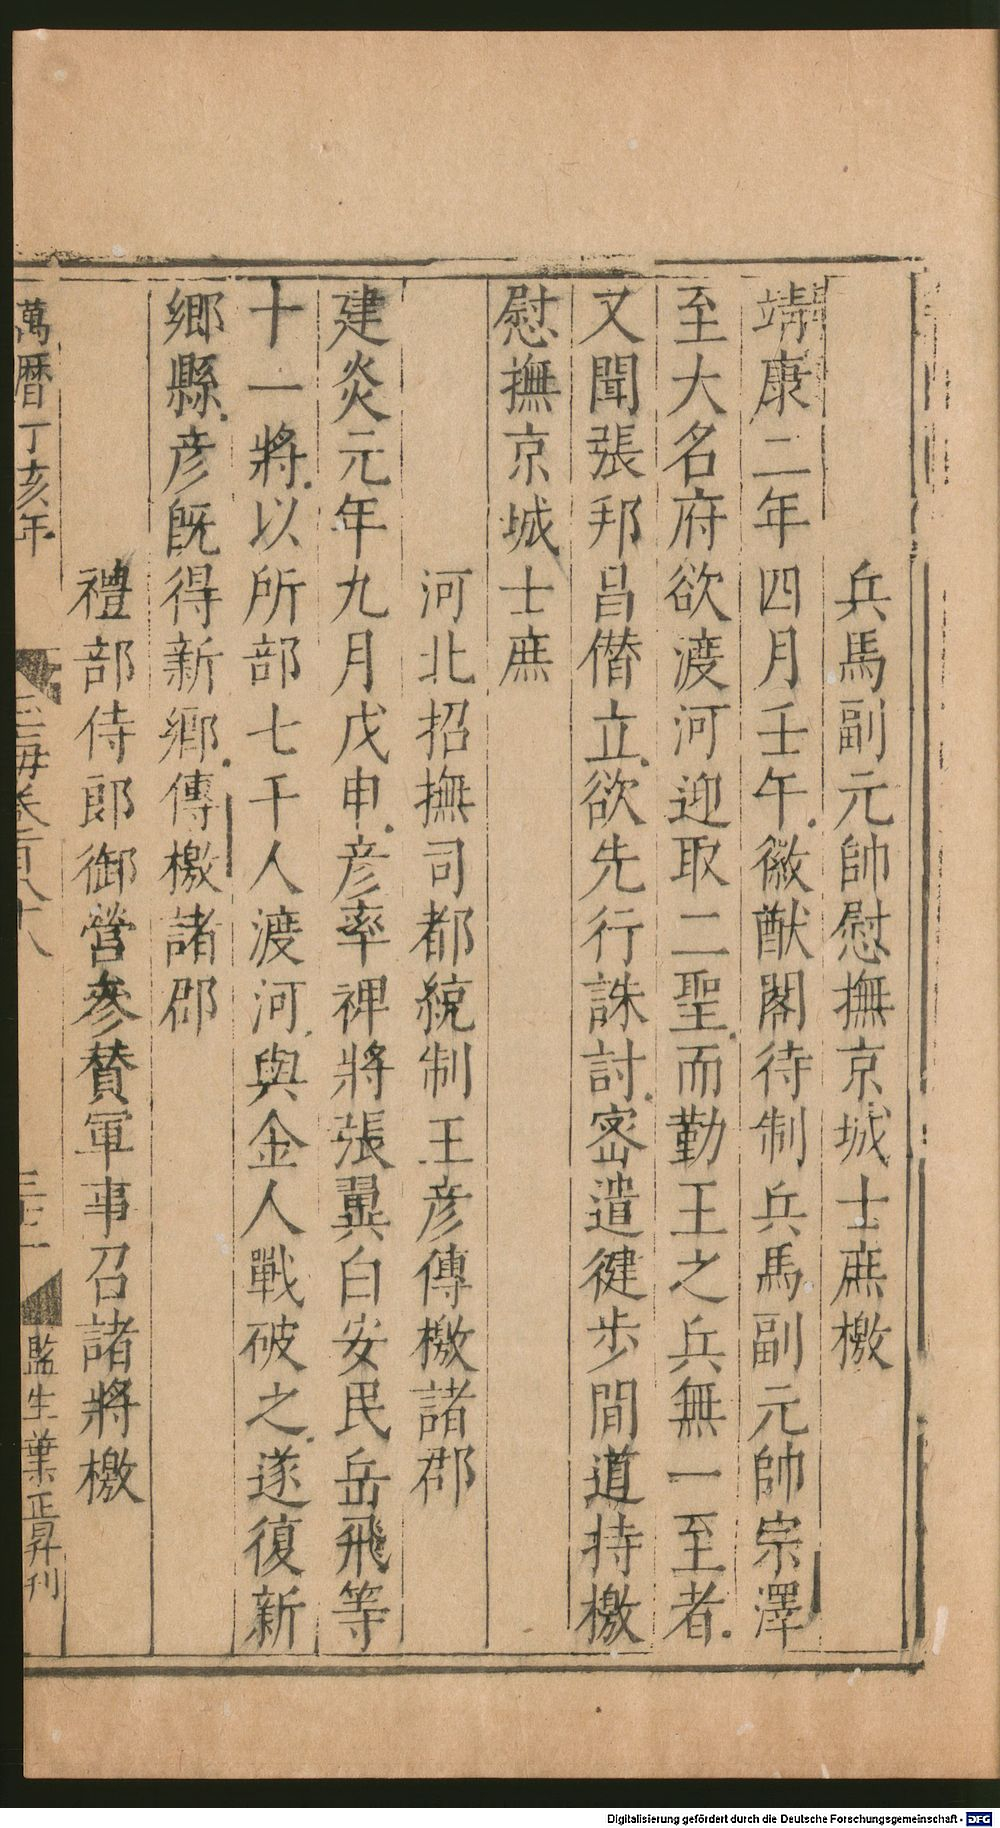 兵馬副元帥慰撫京城士庶檄
靖康二年四月壬午徽猷閣待制兵馬副元帥宗澤
至大名府欲渡河迎取二聖而勤王之兵無一至者
又聞張邦昌僭立欲先行誅討密遣健步間道持檄
慰撫京城士庶
河北招撫司都統制王彦傳檄諸郡
建炎元年九月戊申彦率裨將張翼白安民岳飛等
十一將以所部七千人渡河與金人戰破之遂復新
鄉縣彦旣得新鄉傳檄諸郡
禮部侍郎御營參贊軍事召諸將檄
萬曆丁亥年
監生葉正昇刊
Digitalisierung gefördert durch die Deutsche Forschungsgemeinschaft - DFG